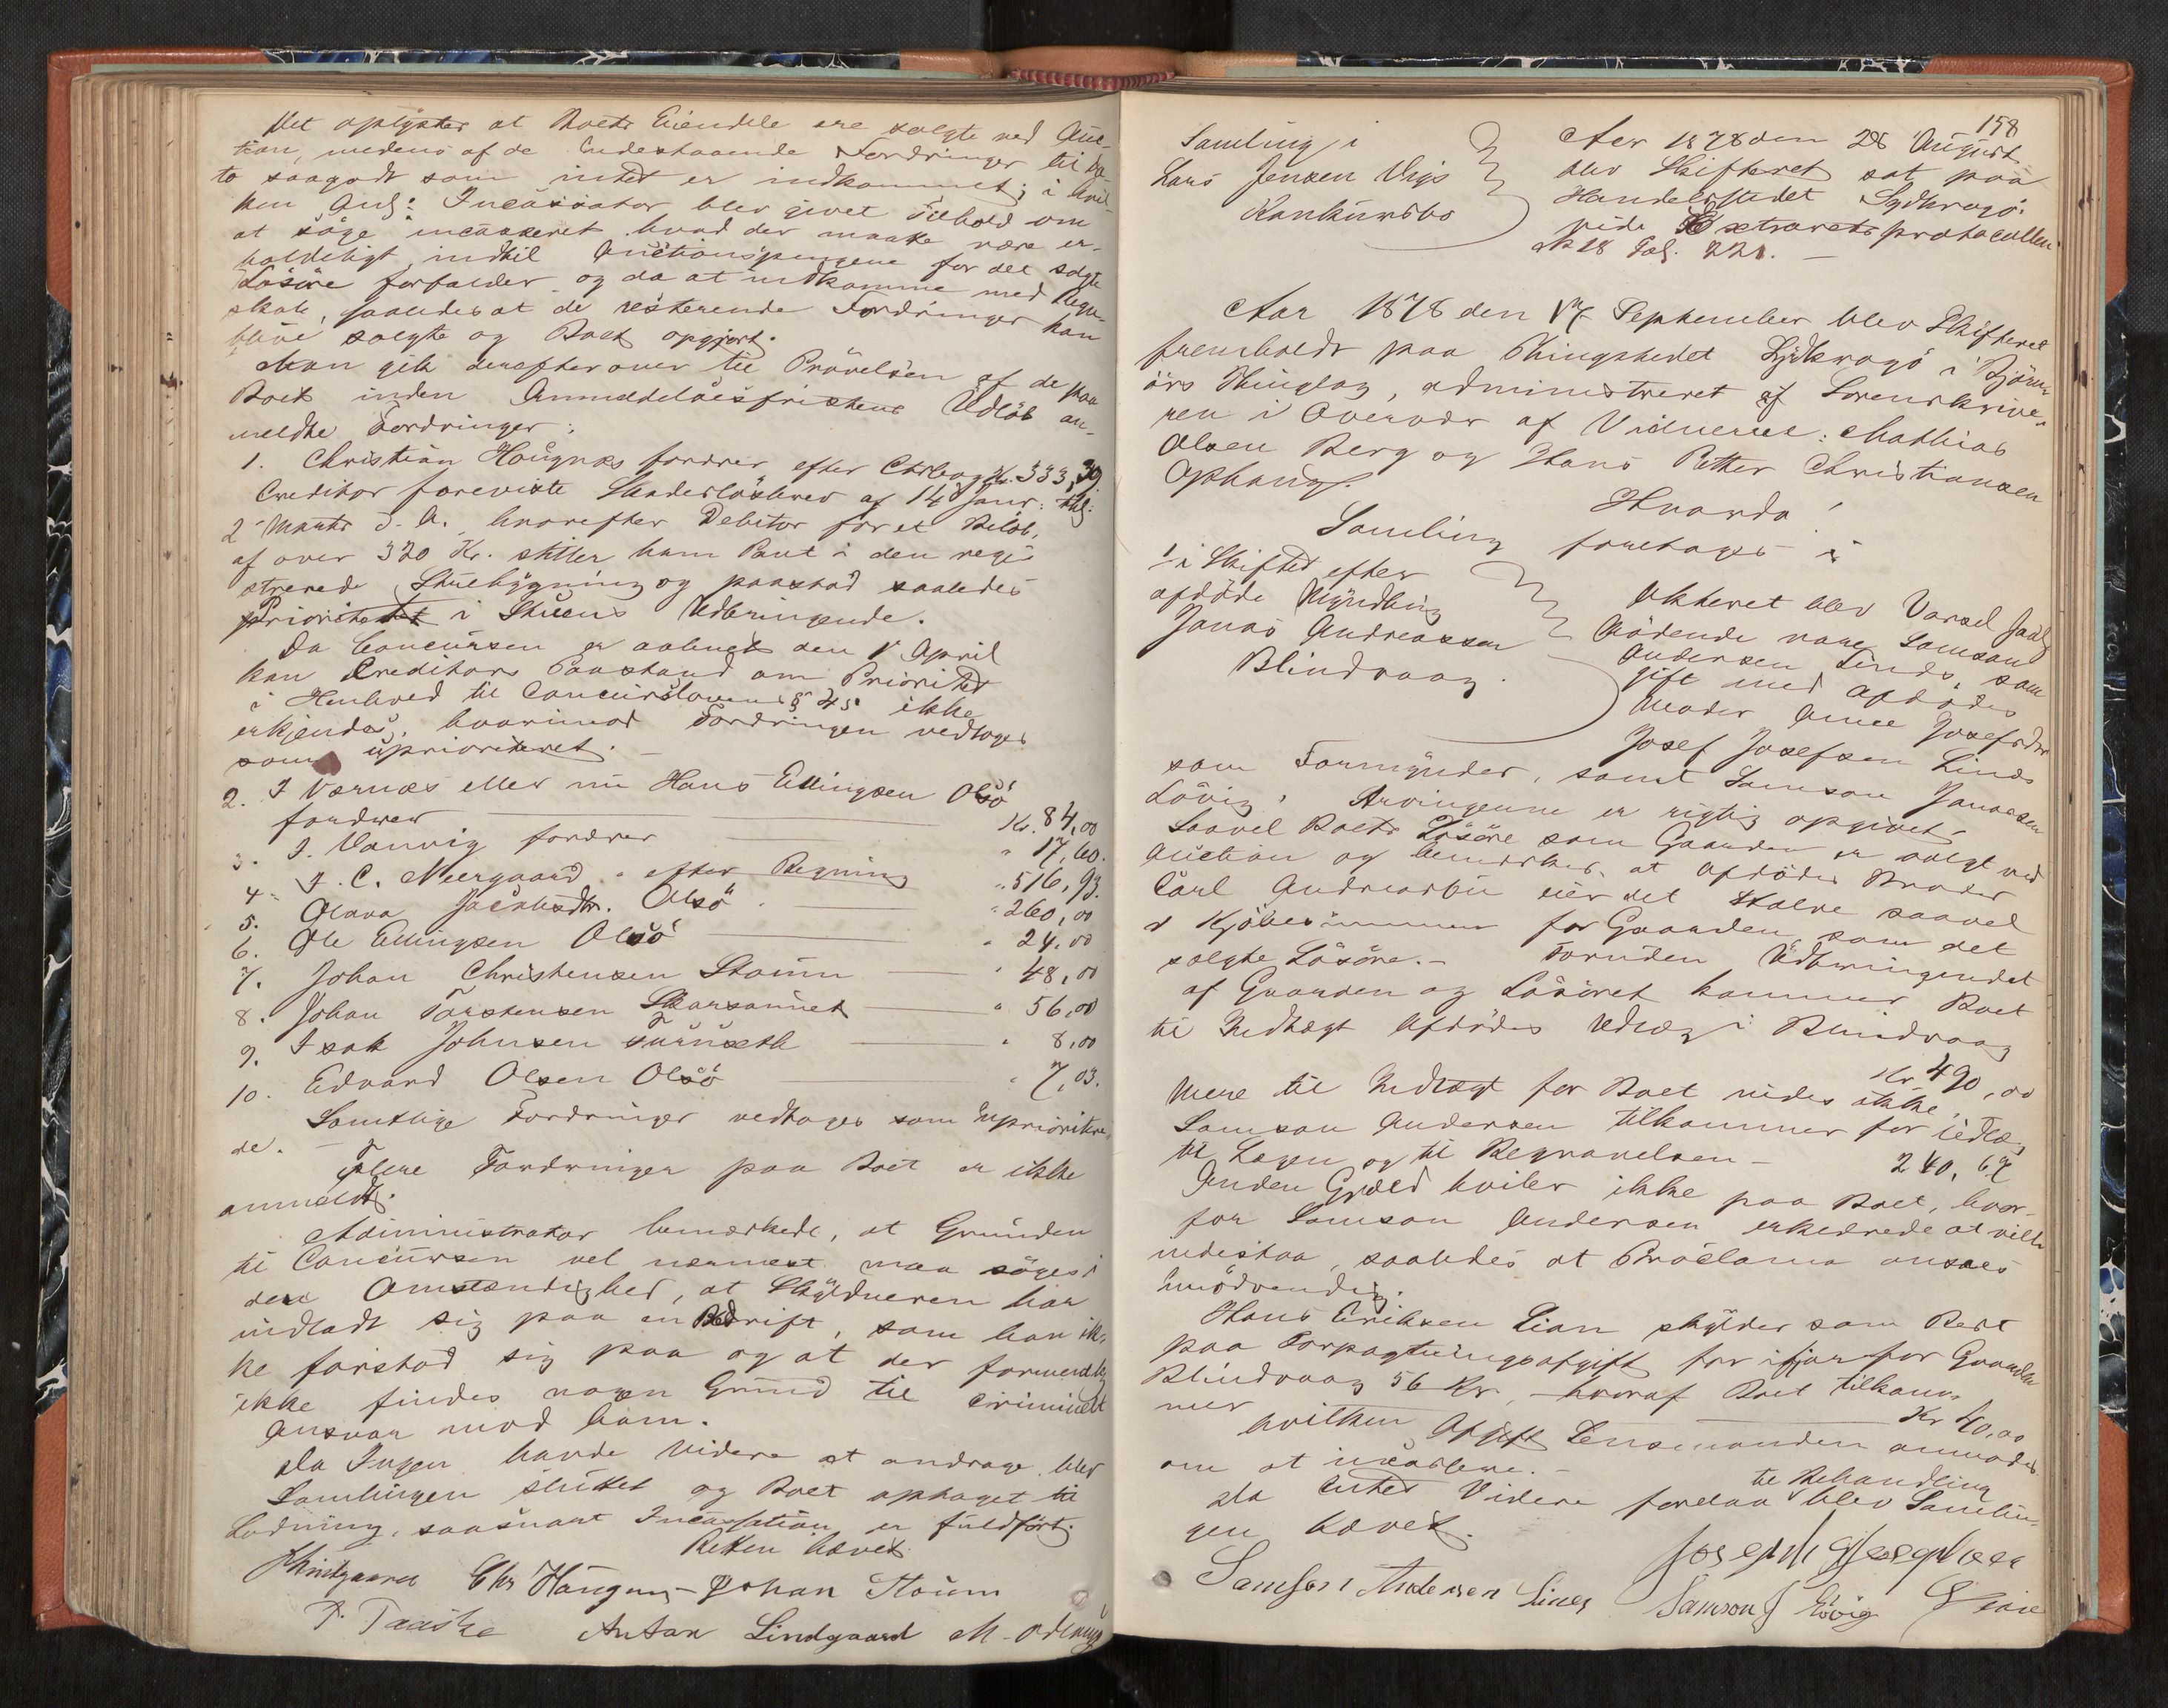 Det oplystes at Boets Eiendele ere solgte ved Auc-
tion, medens af de Indestaaende Fordringer til Da-
to saagodt som intet er indkommet; i hvil-
ken Anl: Incassator blev givet Tilhold om
at søge incasseret hvad der maatte være er-
holdeligt, indtil Auctionspengene for det solgte
Løsøre forfalder og da at indkomme med Regn-
skab, saaledes at de resterende Fordringer kan
blive solgte og Boet opgjort.
Man gik derefter over til Prøvelsen af de paa
Boet inden Anmeldelsesfristens Udløb an-
meldte Fordringer:
1. Christian Haugnæs fordrer efter Kr. 333,39
Creditor foreviste Skadesløsbrev af 14 Janr: thgl:
2 Marts d. A. hvorefter Debitor for et Beløb,
af over 320 Kr. stiller ham Pant i den regi-
strerede Stuebygning og paastod saaledes
Prioritet i Stuens Udbringende.
Da Concursen er aabnet den 1 April
kan Creditors Paastand om Prioritet
i Henhold til Concurslovens § 45 ikke
erkjendes, hvorimod Fordringen vedtages
som uprioriteret.
2. I Værnæs eller nu Hans Ellingsen Olsö
fordrer Kr. 84,00
3. J. Vanvig fordrer " 17,60.
4. I. C. Neergaard " efter Regning " 516,93.
5. Olava Jacobsdtr. Olsö " 260,00
6. Ole Ellingsen Olsö " 24,00
7. Johan Christensen Staum " 48,00
8. Johan Torstensen Skarsaunet " 56,00
9. Isak Johnsen " 8,00
10. Edvard Olsen Olsö " 7,03.
Samtlige Fordringer vedtages som uprioritere-
de. —
Flere Fordringer paa Boet er ikke
anmeldt.
Administrator bemærkede, at Grunden
til Concursen vel nærmest maa søges i
den Omstændighed, at Skyldneren har
indladt sig paa en Bedrift, som han ik-
ke forstod sig paa og at der formentlig
ikke findes nogen Grund til criminelt
Ansvar mod ham.
Da Ingen havde videre at andrage blev
Samlingen sluttet og Boet optaget til
Lodning, saasnart Incassation er fuldført.
Retten hævet
Chr Haugnæs Johan Staum
P. Anton Lindgaard M. Ødegaard
158
Samling i
Lars Jensen Vigs
Konkursbo
Aar 1878 den 28 August
blev Skifteret sat paa
Handelsstedet Sydkrogö.
vide Extraretsprotocollen
No 18 Fol. 221. —
Aar 1878 den 17 September blev Skifteret
fremholdt paa Thingstedet Sydkrogö i Bjørn-
örs Thinglag, administreret af Sorenskrive-
ren i Overvær af Vidnerne: Mathias
Olsen Berg og Hans Petter Christiansen
Ophaug.
Hvorda!
Samling foretages i
1 i Skiftet efter
afdøde Myndling
Jonas Andreassen
Blindvaag.
Akteret blev Varsel
Mödende vare Samson
Andersen Linds, som
gift med Afdødes
Moder Anne Josefsdtr
Josef Josefsen Linds
som Formynder, samt Samson Jonassen
Lövig. Arvingerne er rigtig opgivet.
Saavel Boets Løsøre som Gaarden er solgt ved
Auction og bemærkes, at Afdødes Broder
Carl Andreas eier det Halve saavel
i Kjøbesummen for Gaarden som det
solgte Løsøre. — Foruden Udbringendet
af Gaarden og Løsøret kommer Boet
til Indtægt Afdødes Udlæg i Blindvaag
Kr 490,00
Mere til Indtægt for Boet vides ikke.
Samson Andersen tilkommer for Udlæg
til Lægen og til Begravelsen — 240,67
Anden Gjæld hviler ikke paa Boet, hvor-
for Samson Andersen erklærede at ville
indestaa, saaledes at Proclama ansaaes
unødvendig.
Hans Eriksen Lian skylder som Rest
paa Forpagtningsafgift for ifjor for Gaarden
Blindvaag 56 Kr. — hvoraf Boet tilkom-
mer Kr 40,00
hvilken Afgift Lensmanden anmodes
om at incassere. —
Da Intet Videre forelaa til Behandling blev Samlin-
gen hævet.
Joseph Josephsen
Samson Andersen Linds Samson J Lövig